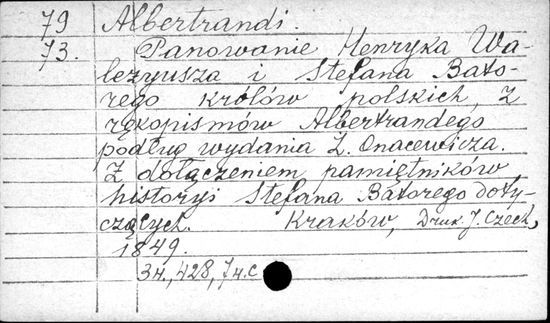 79 Albertrandi.
73. Panowanie Henryka Wa-
lezyusza i Stefana Bato-
rego królów polskich, z
rękopismów Albertrandego
podług wydania Ż. Onacewicza.
Z dołączeniem pamiętników
historyi Stefana Batorego doty-
czących. Kraków, Druk. J. Czech,
1849.
3 н., 428, 7 н. с